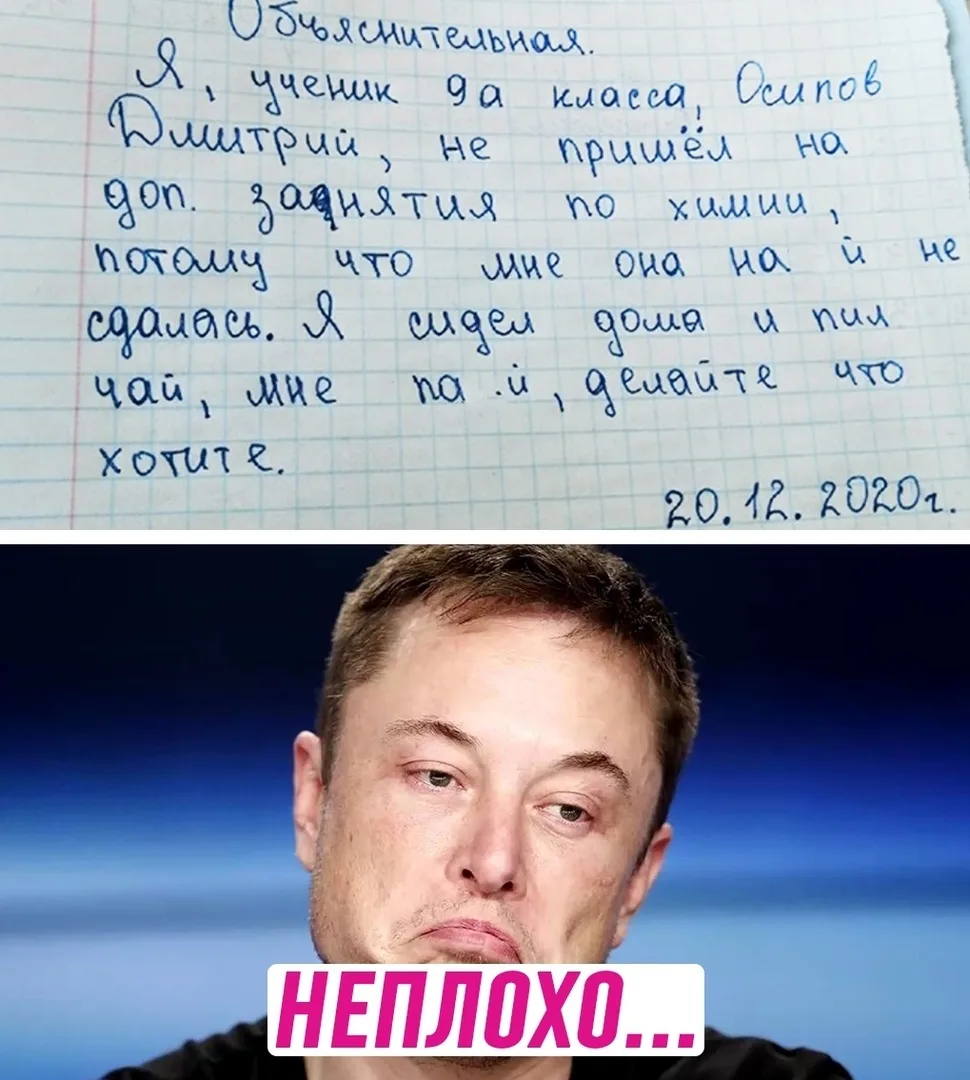 Объяснительная.
Я, ученик 9а класса, Осипов
Дмитрий, не пришёл на
доп. занятия по химии,
потому что мне она на й не
сдалась. Я сидел дома и пил
чай, мне па й, делайте что
хотите.
20.12.2020г.
НЕПЛОХО...